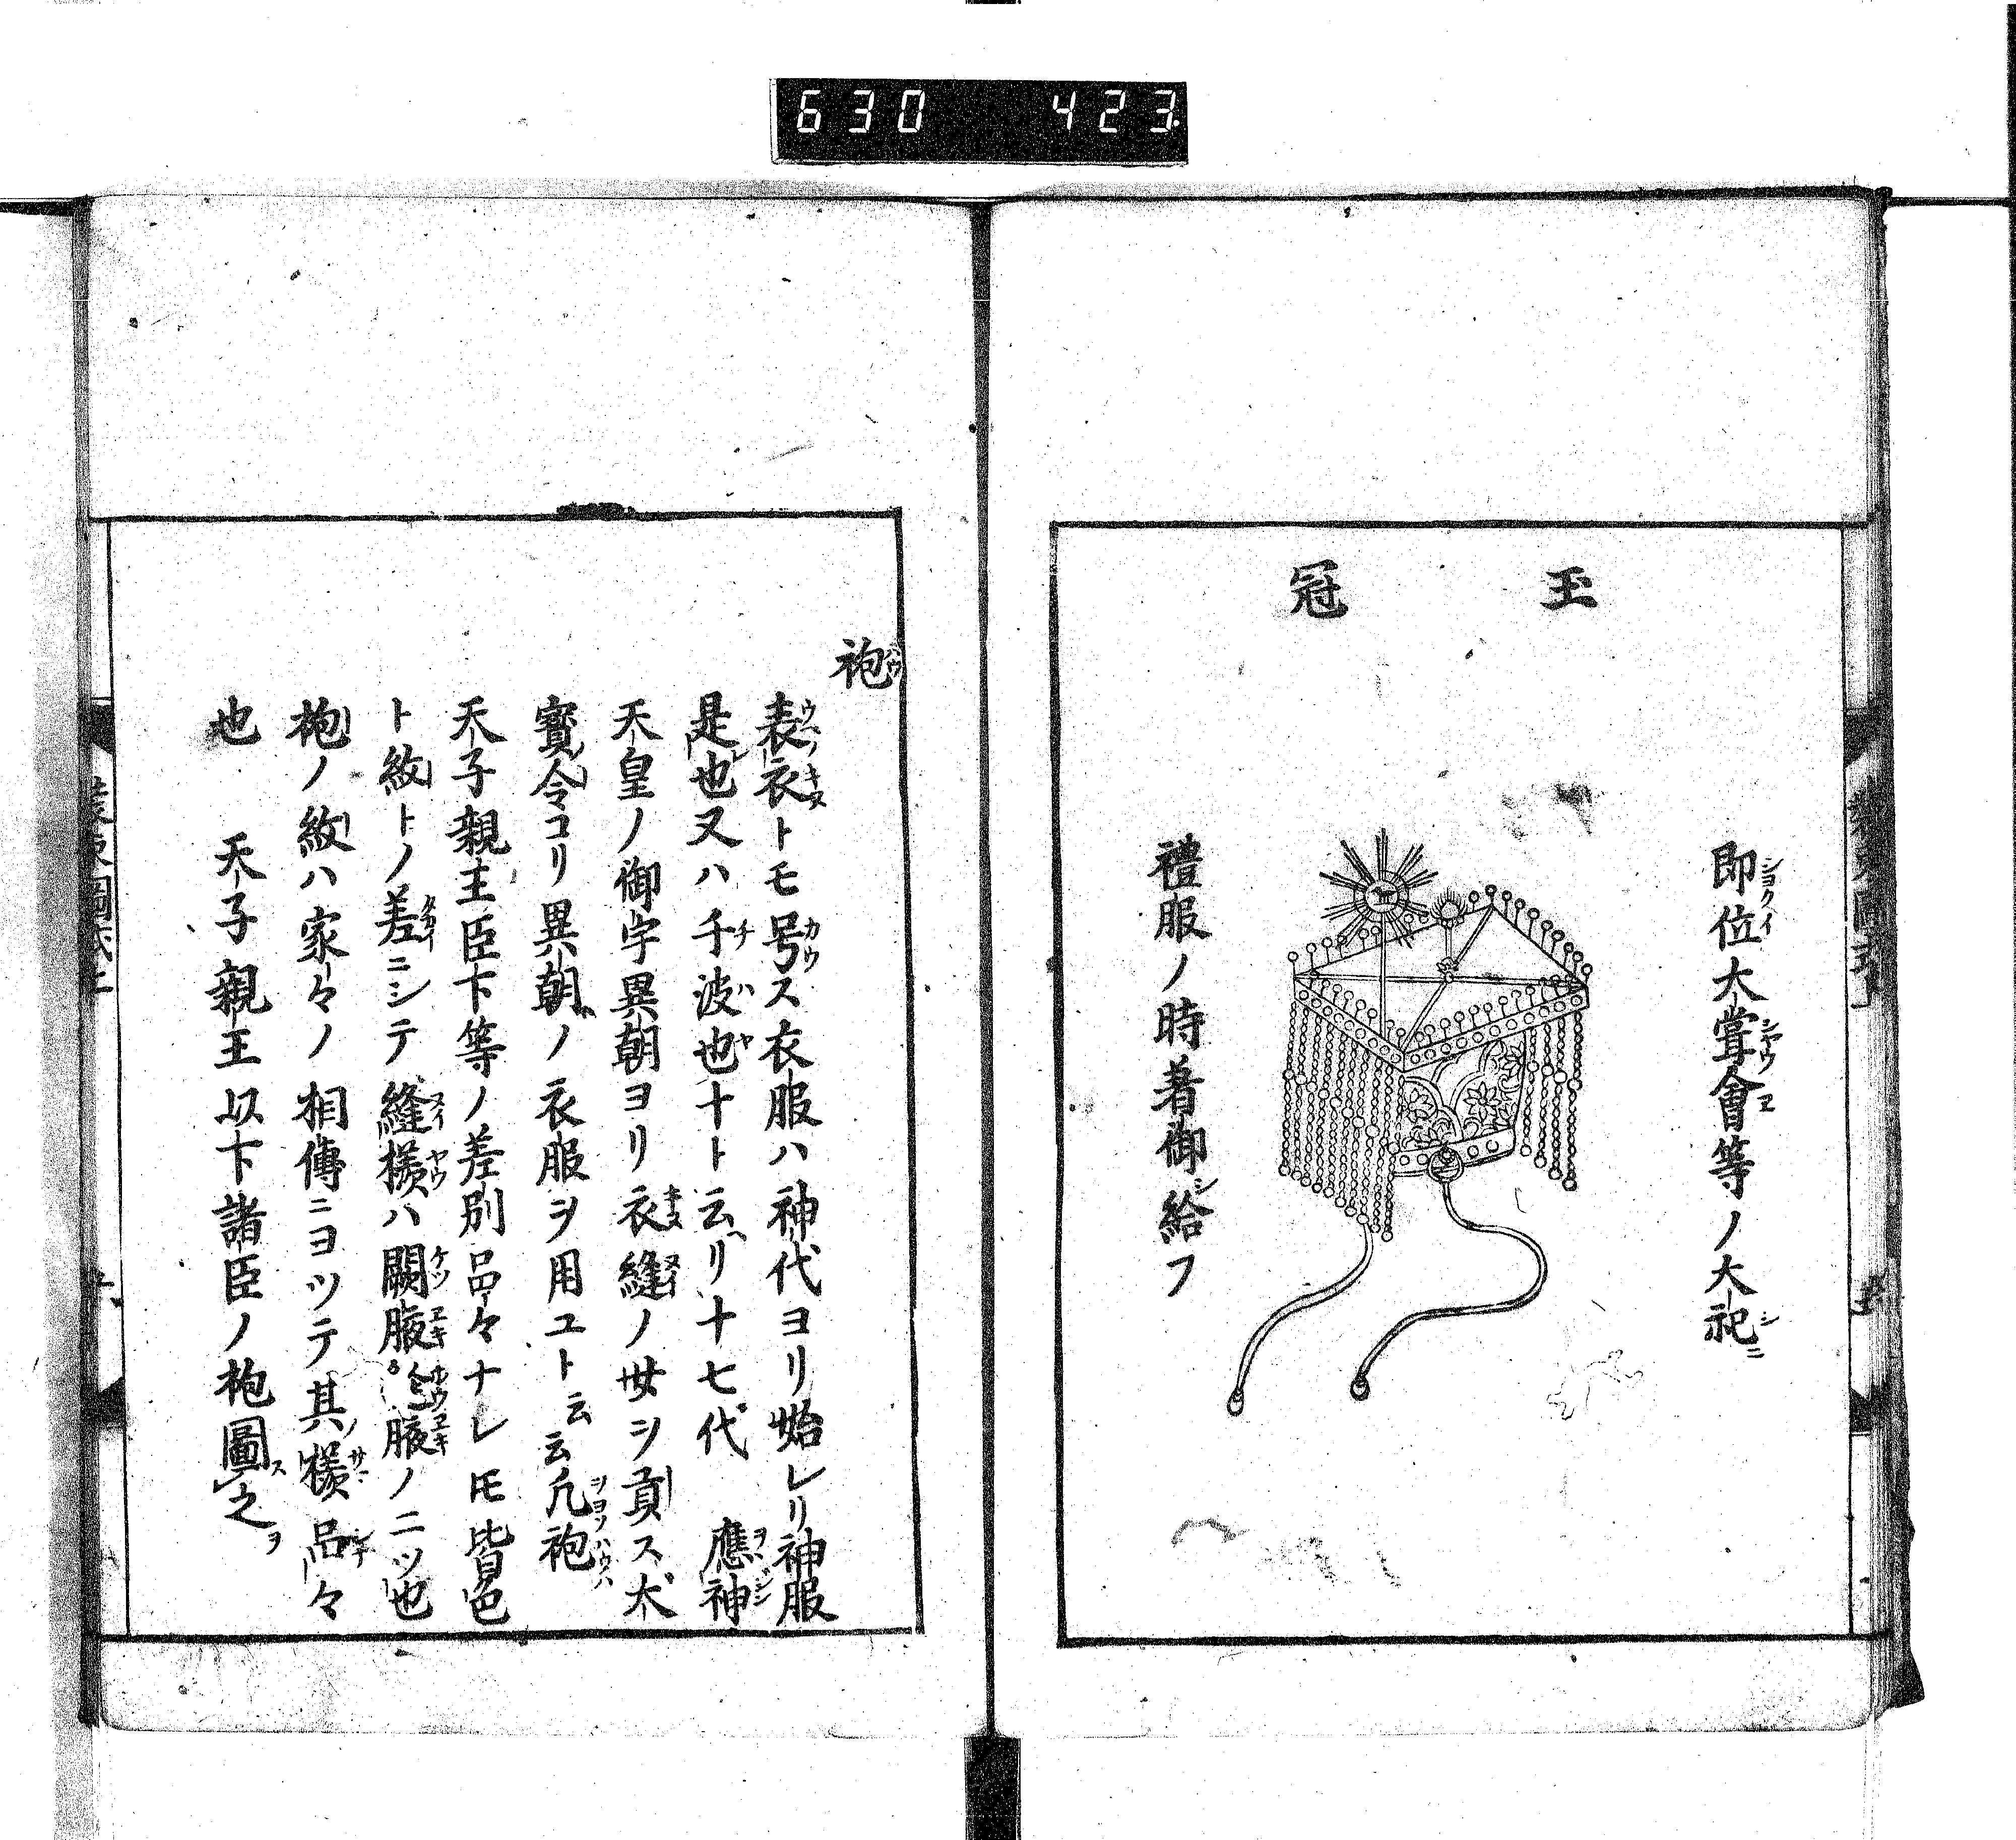 630 423
玉冠
即位大甞會等ノ大祀ニ
禮服ノ時着御シ給フ
袍
表衣トモ号ス衣服ハ神代ヨリ始レリ神服
是也又ハ千波也ナト云リ十七代 應神
天皇ノ御宇異朝ヨリ衣縫ノ女ヲ貢ス大
寳令ヨリ異朝ノ衣服ヲ用ユト云云凡袍
天子親王臣下等ノ差別品々ナレ𪜈皆色
ト紋トノ差ニシテ縫様ハ闕腋縫腋ノ二ツ也
袍ノ紋ハ家々ノ相傳ニヨツテ其様品々
也 天子親王以下諸臣ノ袍圖之